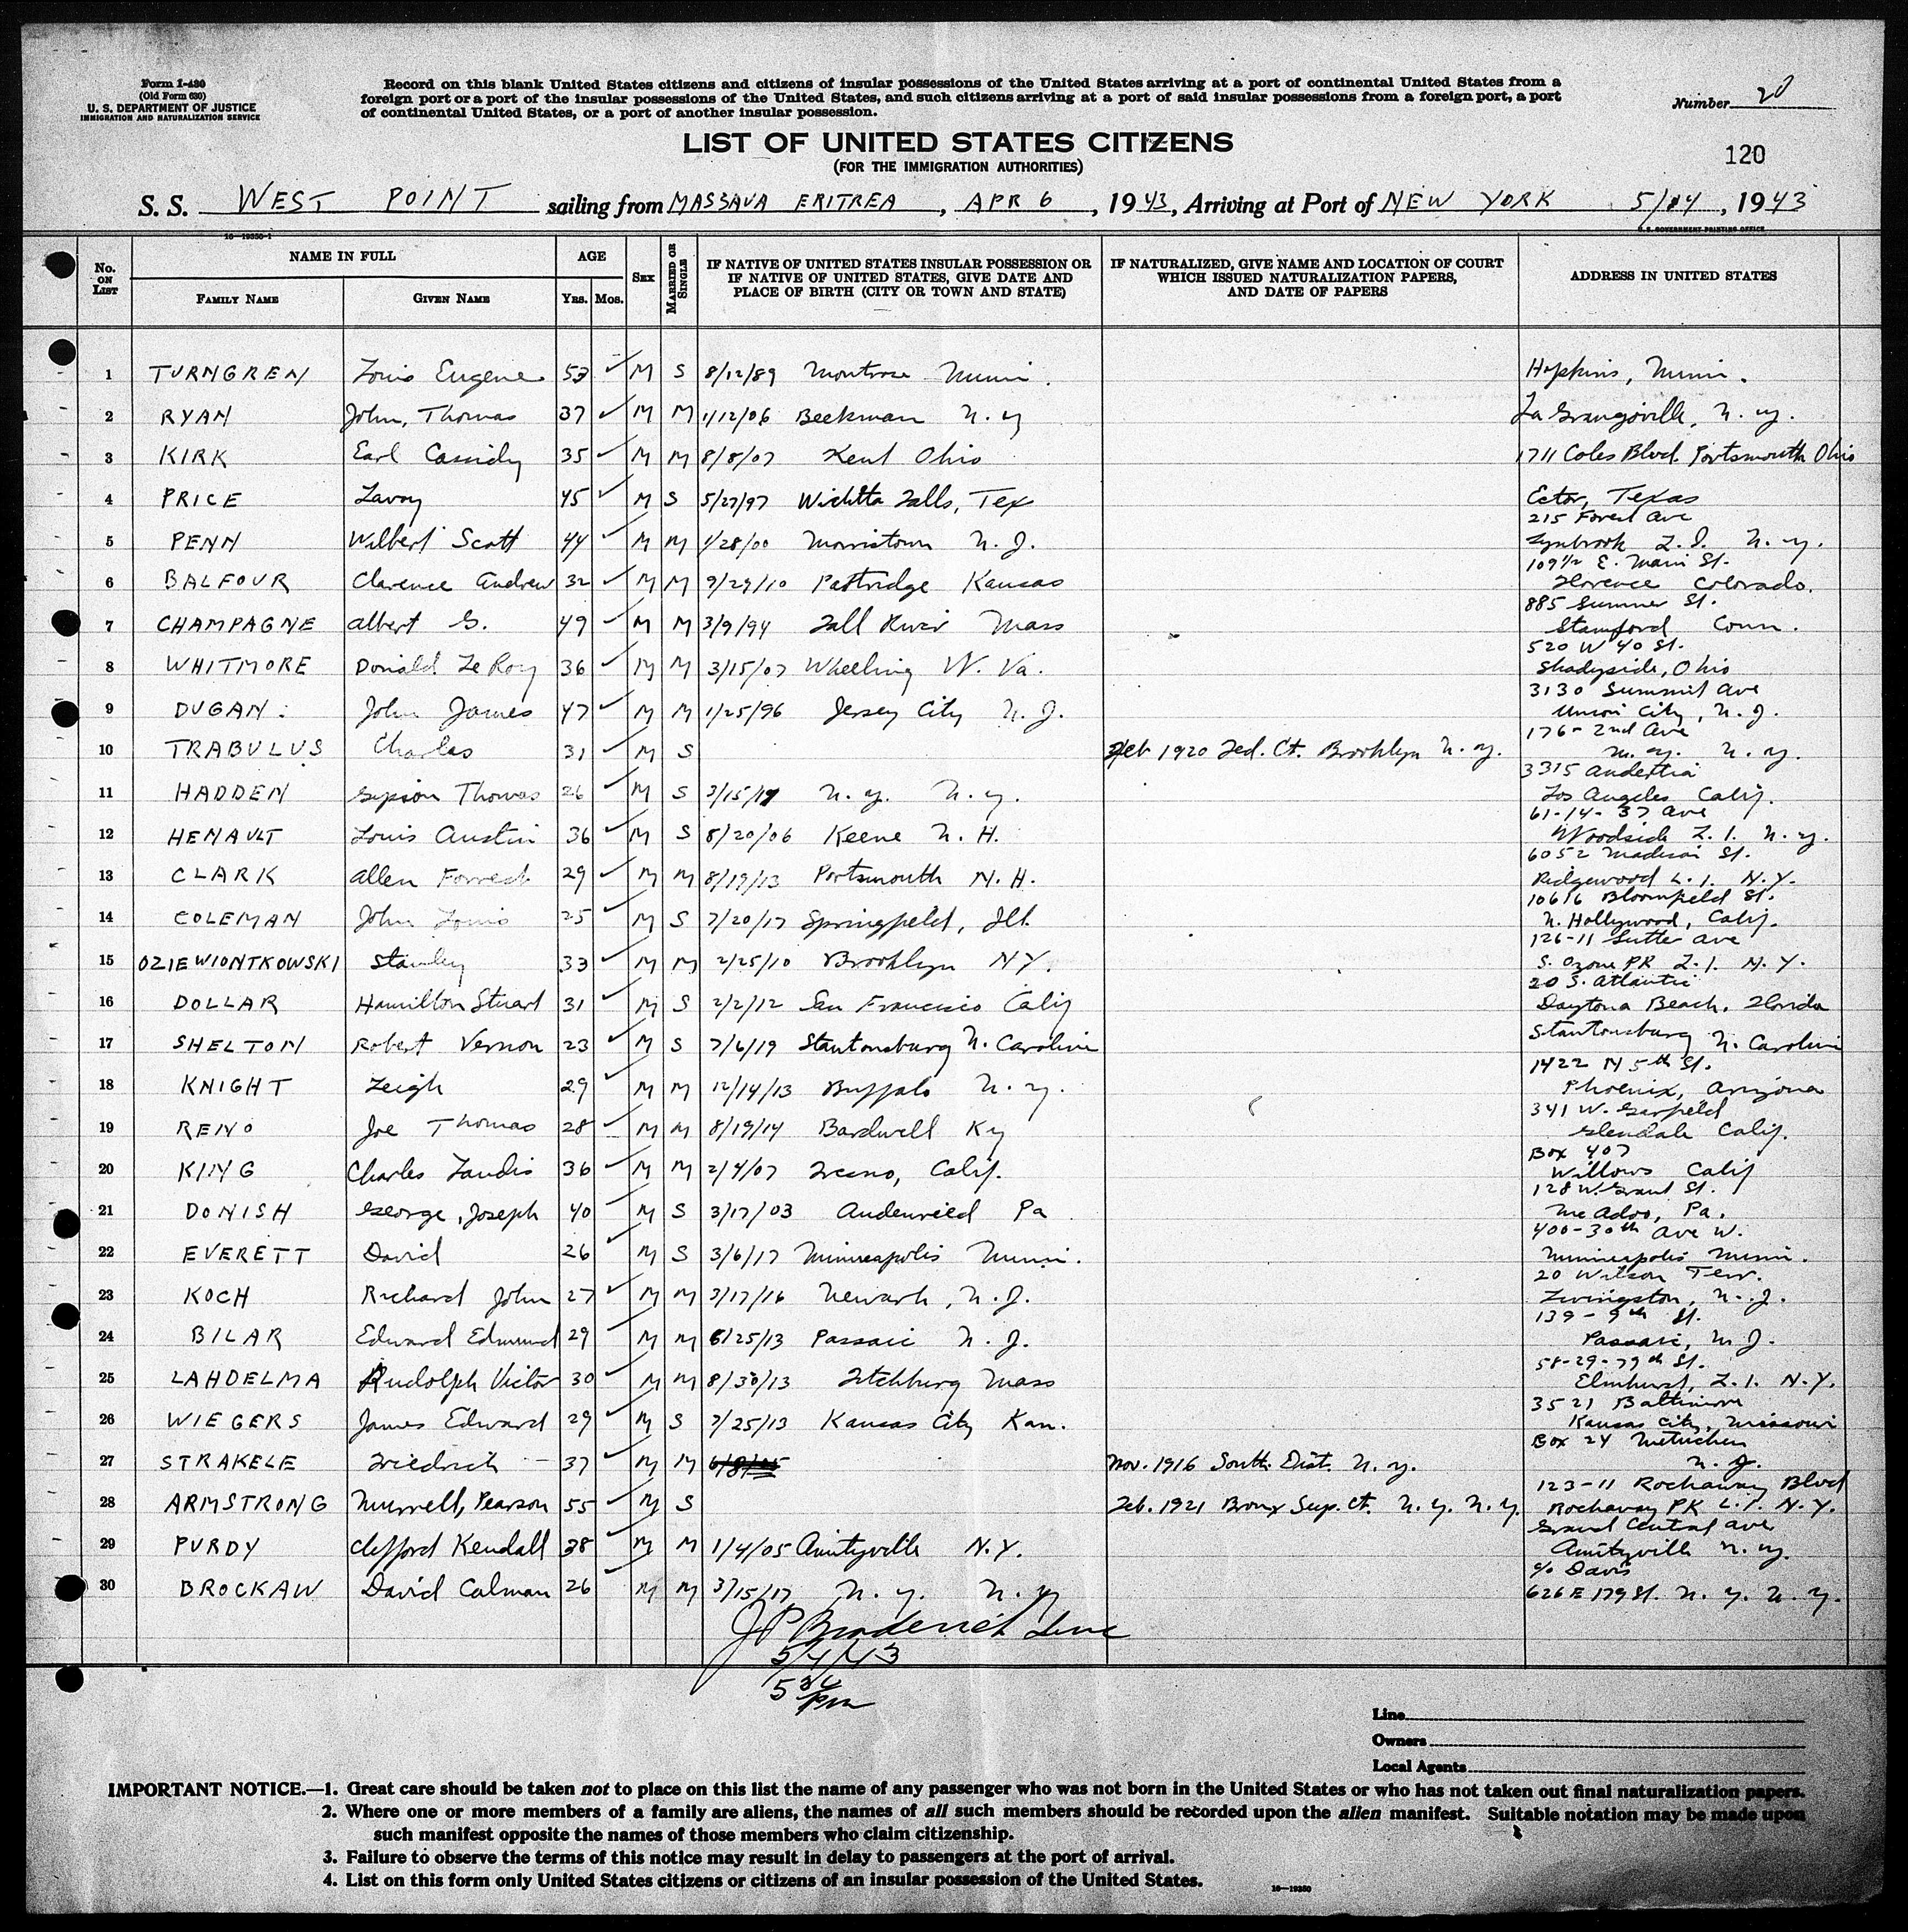 Form I-430
(Old Form 630)
U. S. DEPARTMENT OF JUSTICE
IMMIGRATION AND NATURALIZATION SERVICE
Record on this blank United States citizens and citizens of insular possessions of the United States arriving at a port of continental United States from a
foreign port or a port of the insular possessions of the United States, and such citizens arriving at a port of said insular possessions from a foreign port, a port
of continental United States, or a port of another insular possession.
Number 20
LIST OF UNITED STATES CITIZENS
(FOR THE IMMIGRATION AUTHORITIES)
120
S. S. WEST POINT sailing from MASSAVA ERITREA, APR 6, 1943, Arriving at Port of NEW YORK 5/14, 1943
16—19350-1
U. S. GOVERNMENT PRINTING OFFICE
No. ON LIST
NAME IN FULL
FAMILY NAME
GIVEN NAME
AGE
YRS. MOS.
SEX
MARRIED OR SINGLE
IF NATIVE OF UNITED STATES INSULAR POSSESSION OR
IF NATIVE OF UNITED STATES, GIVE DATE AND
PLACE OF BIRTH (CITY OR TOWN AND STATE)
IF NATURALIZED, GIVE NAME AND LOCATION OF COURT
WHICH ISSUED NATURALIZATION PAPERS,
AND DATE OF PAPERS
ADDRESS IN UNITED STATES
1 TURNGREN Louis Eugene 53 M S 8/12/89 Montrose Minn. Hopkins, Minn.
2 RYAN John, Thomas 37 M M 1/12/06 Beekman N.Y La Grangeville, N.Y.
3 KIRK Earl Cassidy 35 M M 8/8/07 Kent Ohio 1711 Coles Blvd. Portsmouth Ohio
4 PRICE Lavoy 45 M S 5/27/97 Wichita Falls, Tex Ector, Texas
215 Forest Ave
5 PENN Wilbert Scott 44 M M 1/28/00 Morristown N.J. Lynbrook L.I. N.Y.
109 1/2 E. Main St.
6 BALFOUR Clarence Andrew 32 M M 9/29/10 Partridge Kansas Florence Colorado.
885 Summer St.
7 CHAMPAGNE Albert G. 49 M M 3/9/94 Fall River Mass Stamford Conn.
520 W 40 St.
8 WHITMORE Donald LeRoy 36 M M 3/15/07 Wheeling W. Va. Shadyside, Ohio
3130 Summit Ave
9 DUGAN John James 47 M M 1/25/96 Jersey City N.J. Union City, N.J.
176-2nd Ave
10 TRABULUS Charles 31 M S Feb 1920 Fed. Ct. Brooklyn N.Y. N.Y. N.Y.
3315
11 HADDEN Thomas 26 M S 3/15/17 N.Y. N.Y. Los Angeles Calif.
61-14-37 Ave
12 HENAULT Louis Austin 36 M S 8/20/06 Keene N.H. Woodside L.I. N.Y.
6052 Madison St.
13 CLARK Allen Forrest 29 M M 8/19/13 Portsmouth N.H. Ridgewood L.I. N.Y.
10616 Bloomfield St.
14 COLEMAN John Louis 25 M S 7/20/17 Springfield, Ill. N. Hollywood, Calif.
126-11 Sutter Ave
15 OZIEWIONTKOWSKI Stanley 33 M M 2/25/10 Brooklyn NY. S. Ozone PK L.I. N.Y.
20 S. Atlantic
16 DOLLAR Hamilton Stuart 31 M S 2/2/12 San Francisco Calif Daytona Beach, Florida
17 SHELTON Robert Vernon 23 M S 7/6/19 Stantonsburg N. Carolina Stantonsburg N. Carolina
1422 N 5th St.
18 KNIGHT Leigh 29 M M 12/14/13 Buffalo N.Y. Phoenix, Arizona
341 W. Garfield
19 RENO Joe Thomas 28 M M 8/19/14 Bardwell Ky Glendale Calif.
Box 407
20 KING Charles Landis 36 M M 2/4/07 Fresno, Calif. Willows Calif
128 W. Grant St.
21 DONISH George, Joseph 40 M S 3/17/03 Audenreid Pa McAdoo, Pa.
400-30th Ave W.
22 EVERETT David 26 M S 3/6/17 Minneapolis Minn. Minneapolis Minn.
20 Wilson Terr.
23 KOCH Richard John 27 M M 3/17/16 Newark, N.J. Livingston, N.J.
139-9th St.
24 BILAR Edward Edmund 29 M M 6/25/13 Passaic N.J. Passaic, N.J.
58-29-79th St.
25 LAHDELMA Rudolph Victor 30 M M 8/30/13 Fitchburg Mass Elmhurst, L.I. N.Y.
3521 Baltimore
26 WIEGERS James Edward 29 M S 7/25/13 Kansas City Kan. Kansas City, Missouri
Box 24 Metuchen
27 STRAKELE Friedrich 37 M M Nov. 1916 South. Dist. N.Y. N.J.
123-11 Rockaway Blvd
28 ARMSTRONG Murrell, Pearson 55 M S Feb. 1921 Bronx Sup. Ct. N.Y. N.Y. Rockaway PK L.I. N.Y.
Grand Central Ave
29 PURDY Clifford Kendall 38 M M 1/4/05 Amityville N.Y. Amityville N.Y.
c/o Davis
30 BROCKAW David Calman 26 M M 3/15/17 N.Y. N.Y 626 E 179 St. N.Y. N.Y.
JP Broderick
5/4/43
5 30 pm
Line
Owners
Local Agents
IMPORTANT NOTICE.—1. Great care should be taken not to place on this list the name of any passenger who was not born in the United States or who has not taken out final naturalization papers.
2. Where one or more members of a family are aliens, the names of all such members should be recorded upon the alien manifest. Suitable notation may be made upon
such manifest opposite the names of those members who claim citizenship.
3. Failure to observe the terms of this notice may result in delay to passengers at the port of arrival.
4. List on this form only United States citizens or citizens of an insular possession of the United States.
16—19350